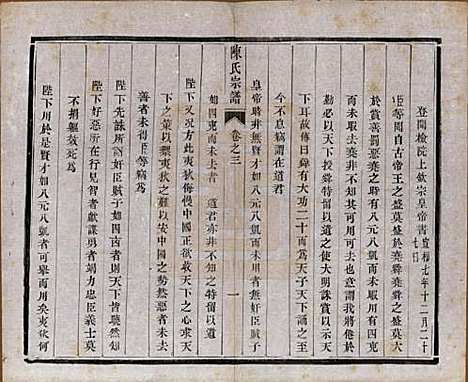 登聞檢院上欽宗皇帝書宣和七年十二月二十七日
臣等聞自古帝王之盛莫盛於堯舜堯舜之盛莫大
於賞善罰惡堯之時有八元八凱而未用有四兇
而未去非堯不知其可用可去也意謂我將倦於
勤必以天下授舜特留以遺之使大明誅賞以示天
下耳故傳曰舜有大功二十而為天子天下誦之至
今不息竊謂在道君
皇帝時非無賢才如八元八凱而未用者無奸臣賊子
如四兇而未去者 道君亦非不知之特留以遺
陛下又況方此夷狄侮慢中國正欲收天下之心求天
下之策以禦夷狄之難以安中國之勢然惡者未去
善者未得臣等竊為
陛下先誅所謂奸臣賊子如四者則天下皆曉然知
陛下好惡所在行見智者獻謀勇者竭力忠臣義士莫
不捐軀效死為
陛下用於是賢才如八元八凱者可舉而用矣夷狄何
陳氏宗譜
卷之三
一